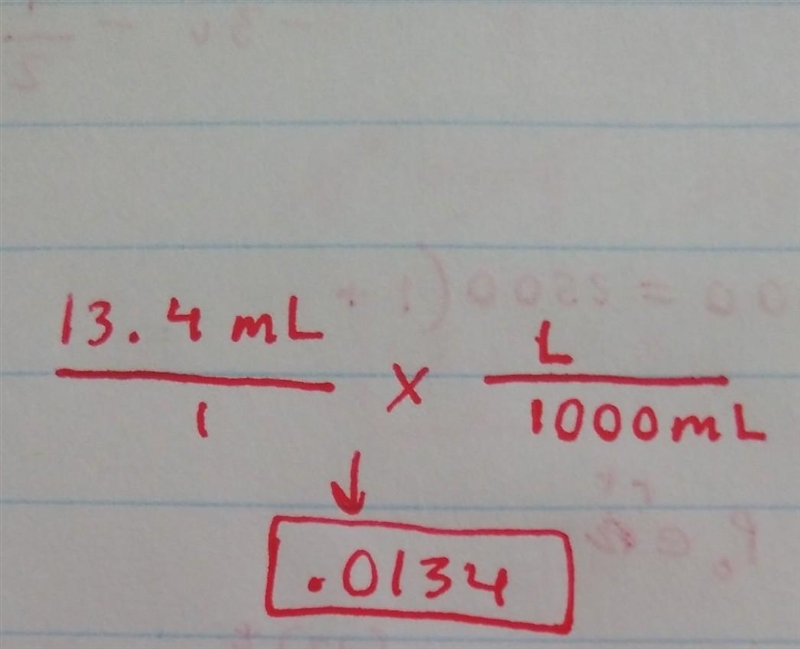 13.4 mL
1
X
L
1000mL
↓
.0134